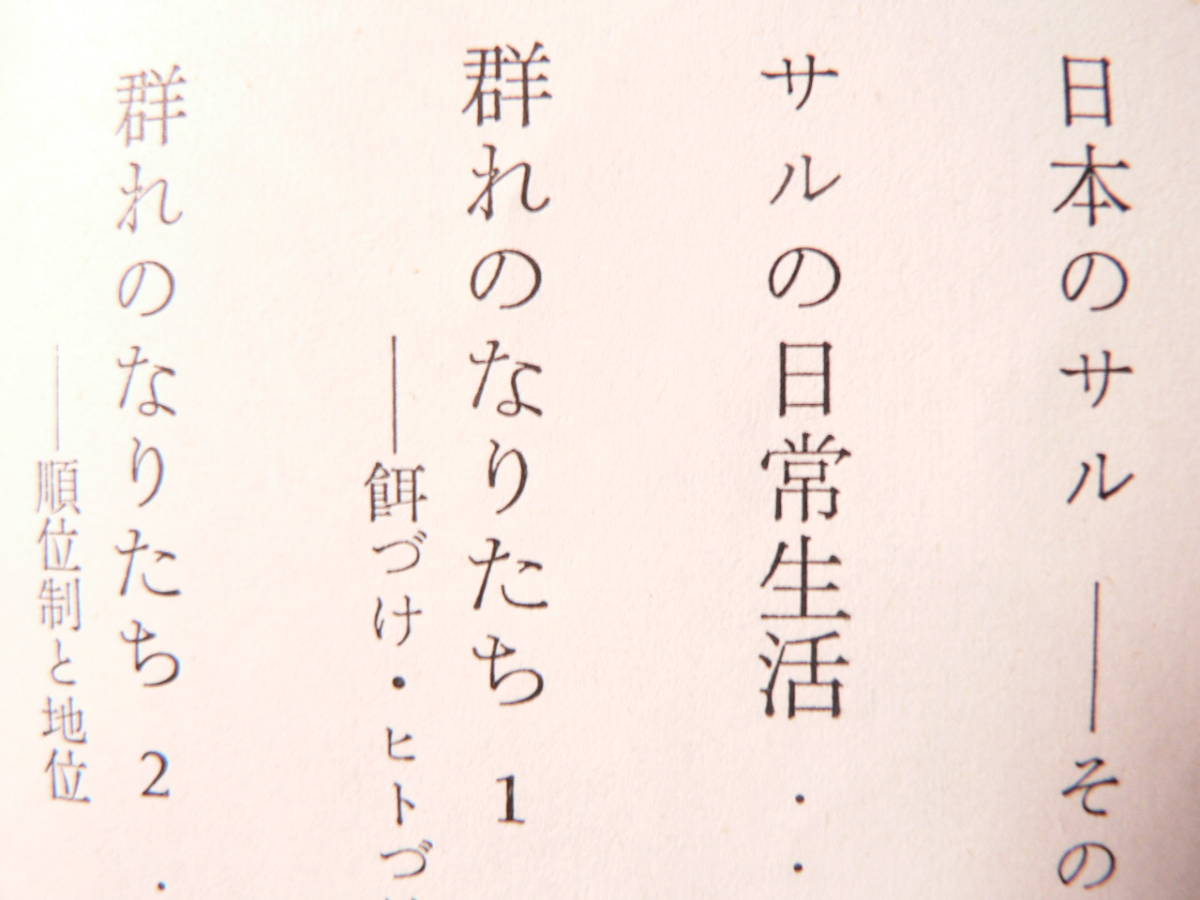 日本のサル ――その
サルの日常生活 ・・
群れのなりたち 1
――餌づけ・ヒトづ
群れのなりたち 2 ・
――順位制と地位